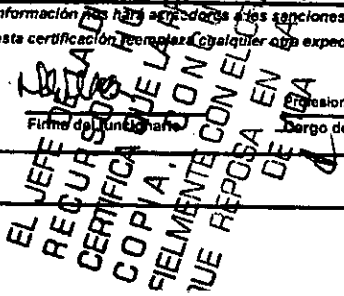 nformación nos hará acreedores a las sanciones
esta certificación reemplaza cualquier otra exped
Profesion
Firma del funcionario
Cargo de
EL JEFE DE LA DI
RECURSOS HU
CERTIFICA QUE LA
COPIA, CON
FIELMENTE CON EL O
QUE REPOSA EN LA
DE